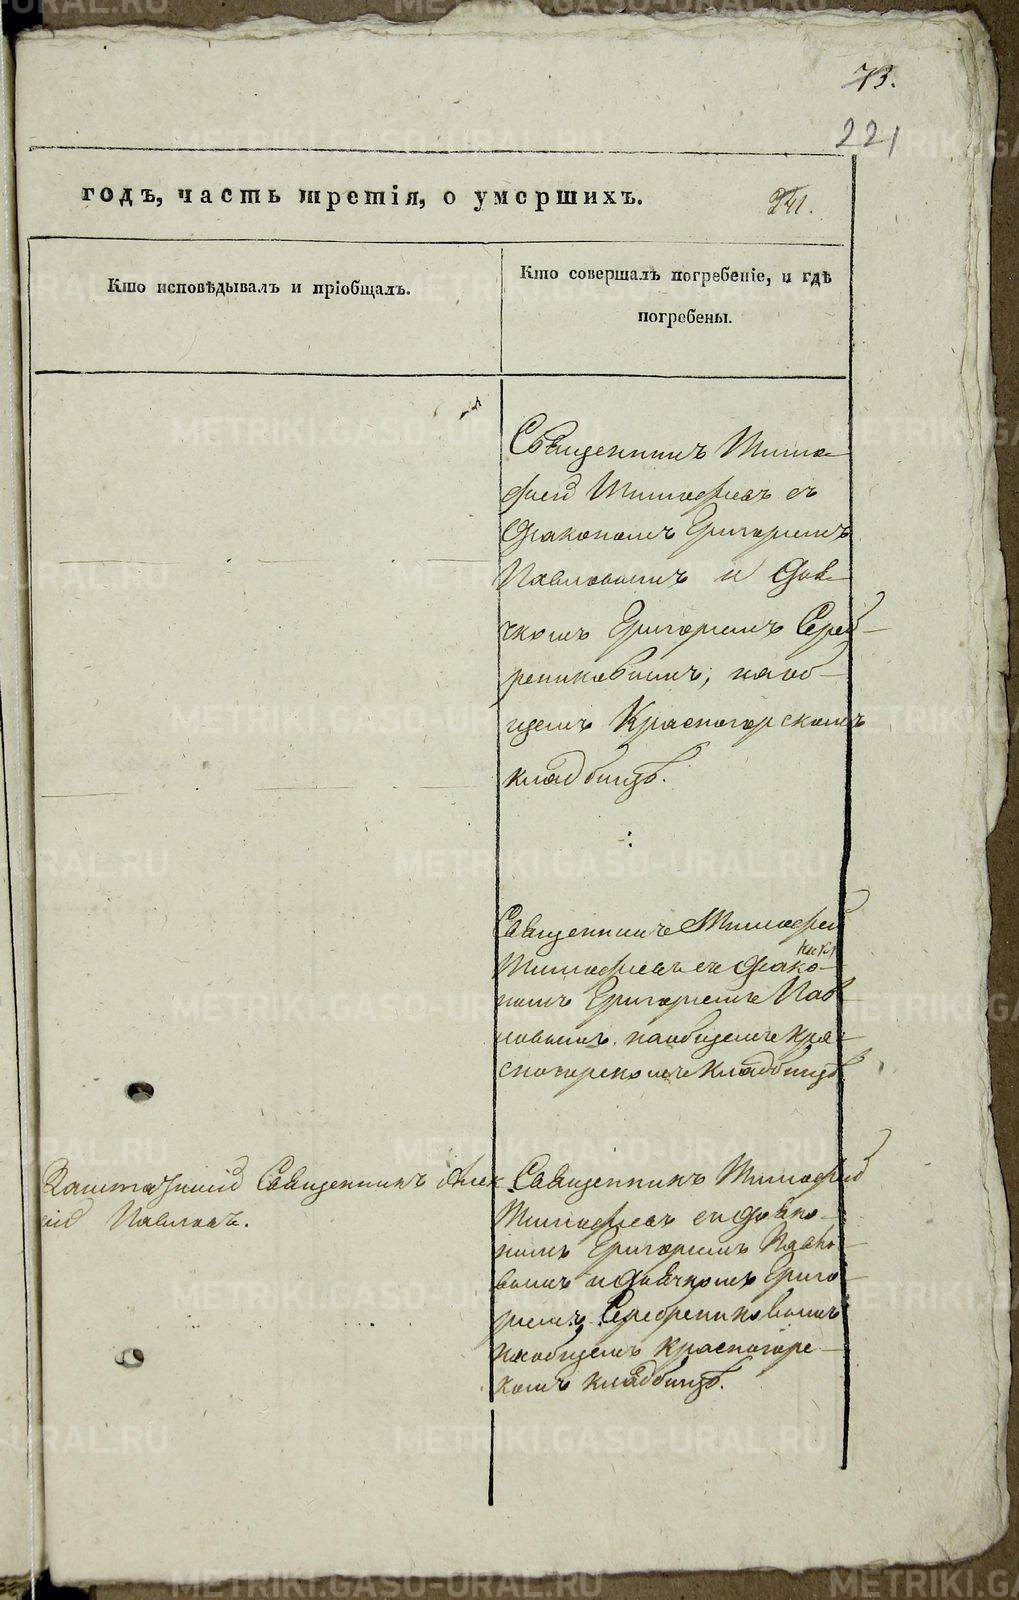 73.
221
годъ, часть третія, о умершихъ.
Кто исповѣдывалъ и пріобщалъ.
Кто совершалъ погребеніе, и гдѣ
погребены.
Священникъ Тимо-
фей Тимофеевъ съ
Діакономъ Григоріемъ
Павловымъ и Дья-
чкомъ Григоріемъ Сереб-
рениковымъ, на об-
щемъ Красногорскомъ
кладбищѣ.
Священникъ Тимофей
Тимофеевъ съ Діако-
номъ Григоріемъ Пав
ловымъ на общемъ Кра-
сногорскомъ Кладбищѣ
Священникъ Алек
сій Павловъ.
Священникъ Тимофей
Тимофеевъ съ діако-
номъ Григоріемъ Павло-
вымъ и дьячкомъ Григо-
ріемъ Серебрениковымъ
на общемъ Красногорс-
комъ кладбищѣ.
METRIKI.GASO-URAL.RU